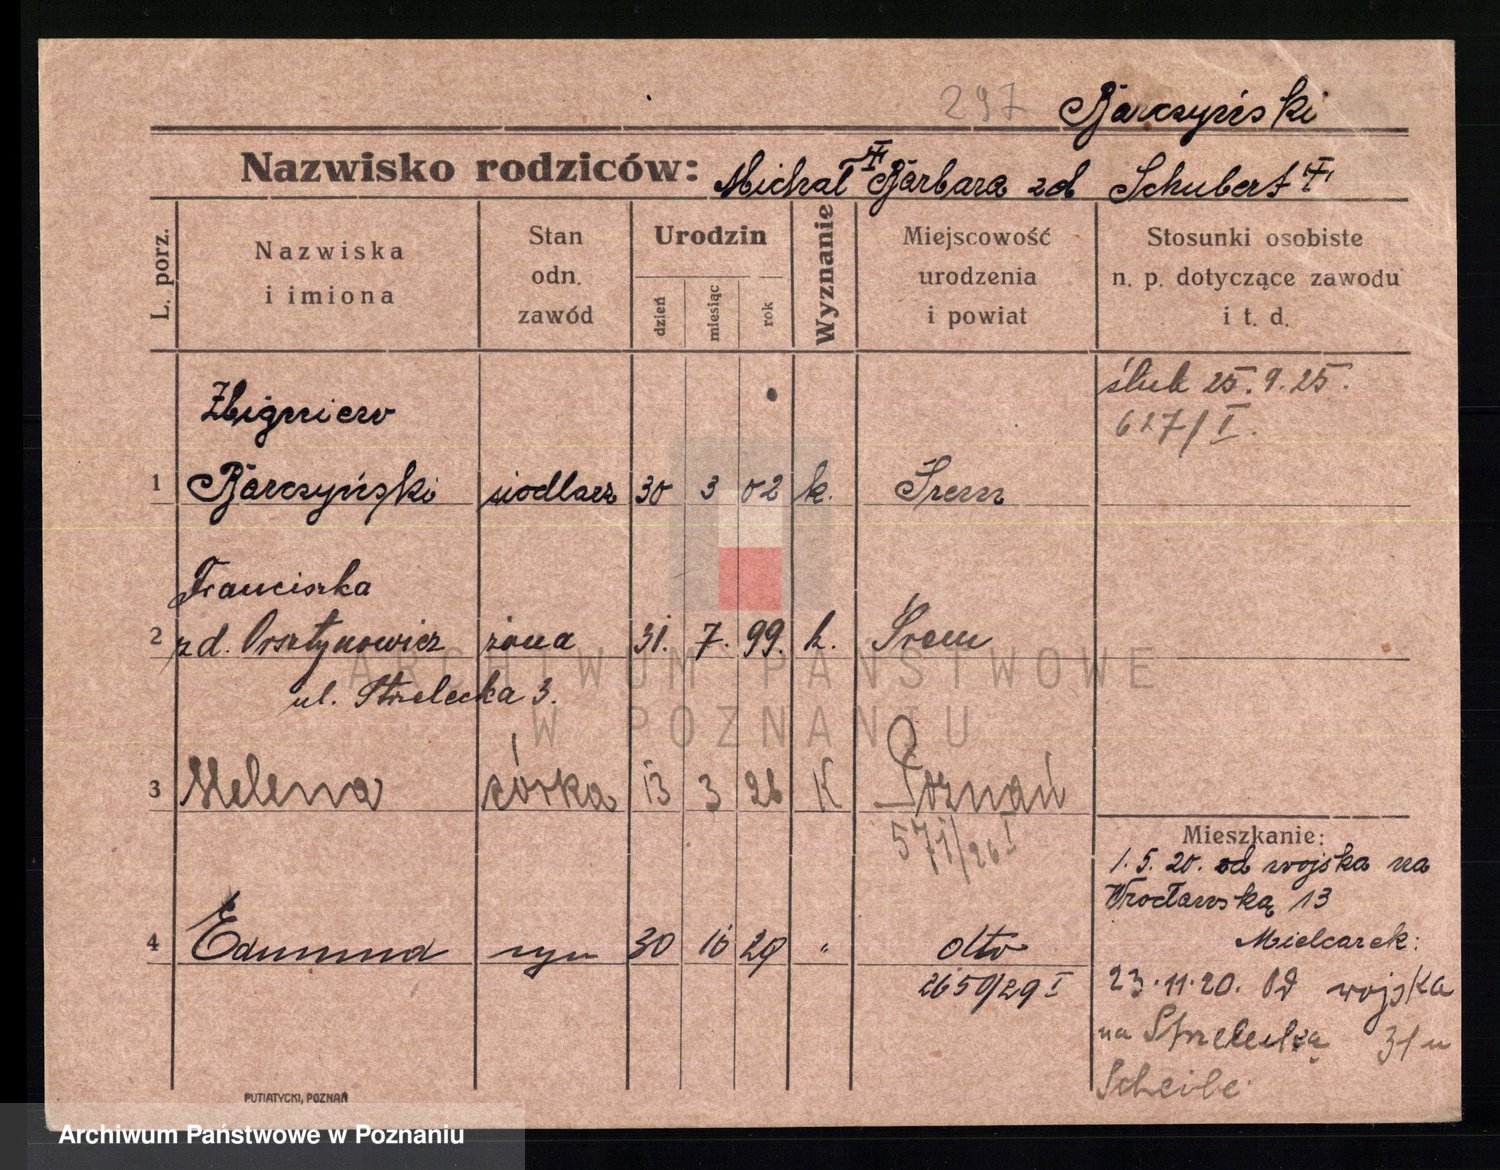 297 Barczyński
Nazwisko rodziców: Michał Barbara zd Schubert
L. porz.
Nazwiska
i imiona
Stan
odn.
zawód
Urodzin
dzień
miesiąc
rok
Wyznanie
Miejscowość
urodzenia
i powiat
Stosunki osobiste
n. p. dotyczące zawodu
i t. d.
ślub 25.9.25.
627/I.
Zbigniew
1 Barczyński siodlarz 30 3 02 k. Śrem
Franciszka
2 zd. Orsztynowicz żona 31. 7. 99. k. Śrem
ul. Strzelecka 3.
3 Helena córka 13 3 26 K Poznań
571/26 I
4 Edmund syn 30 10 29 " dtto
2650/29 I
Mieszkanie:
1.5.20. od wojska na
Wrocławską 13
Mielcarek:
23.11.20. Od wojska
na Strzelecką 31 u
Scheibe
PUTIATYCKI, POZNAŃ
ARCHIWUM PAŃSTWOWE
W POZNANIU
Archiwum Państwowe w Poznaniu